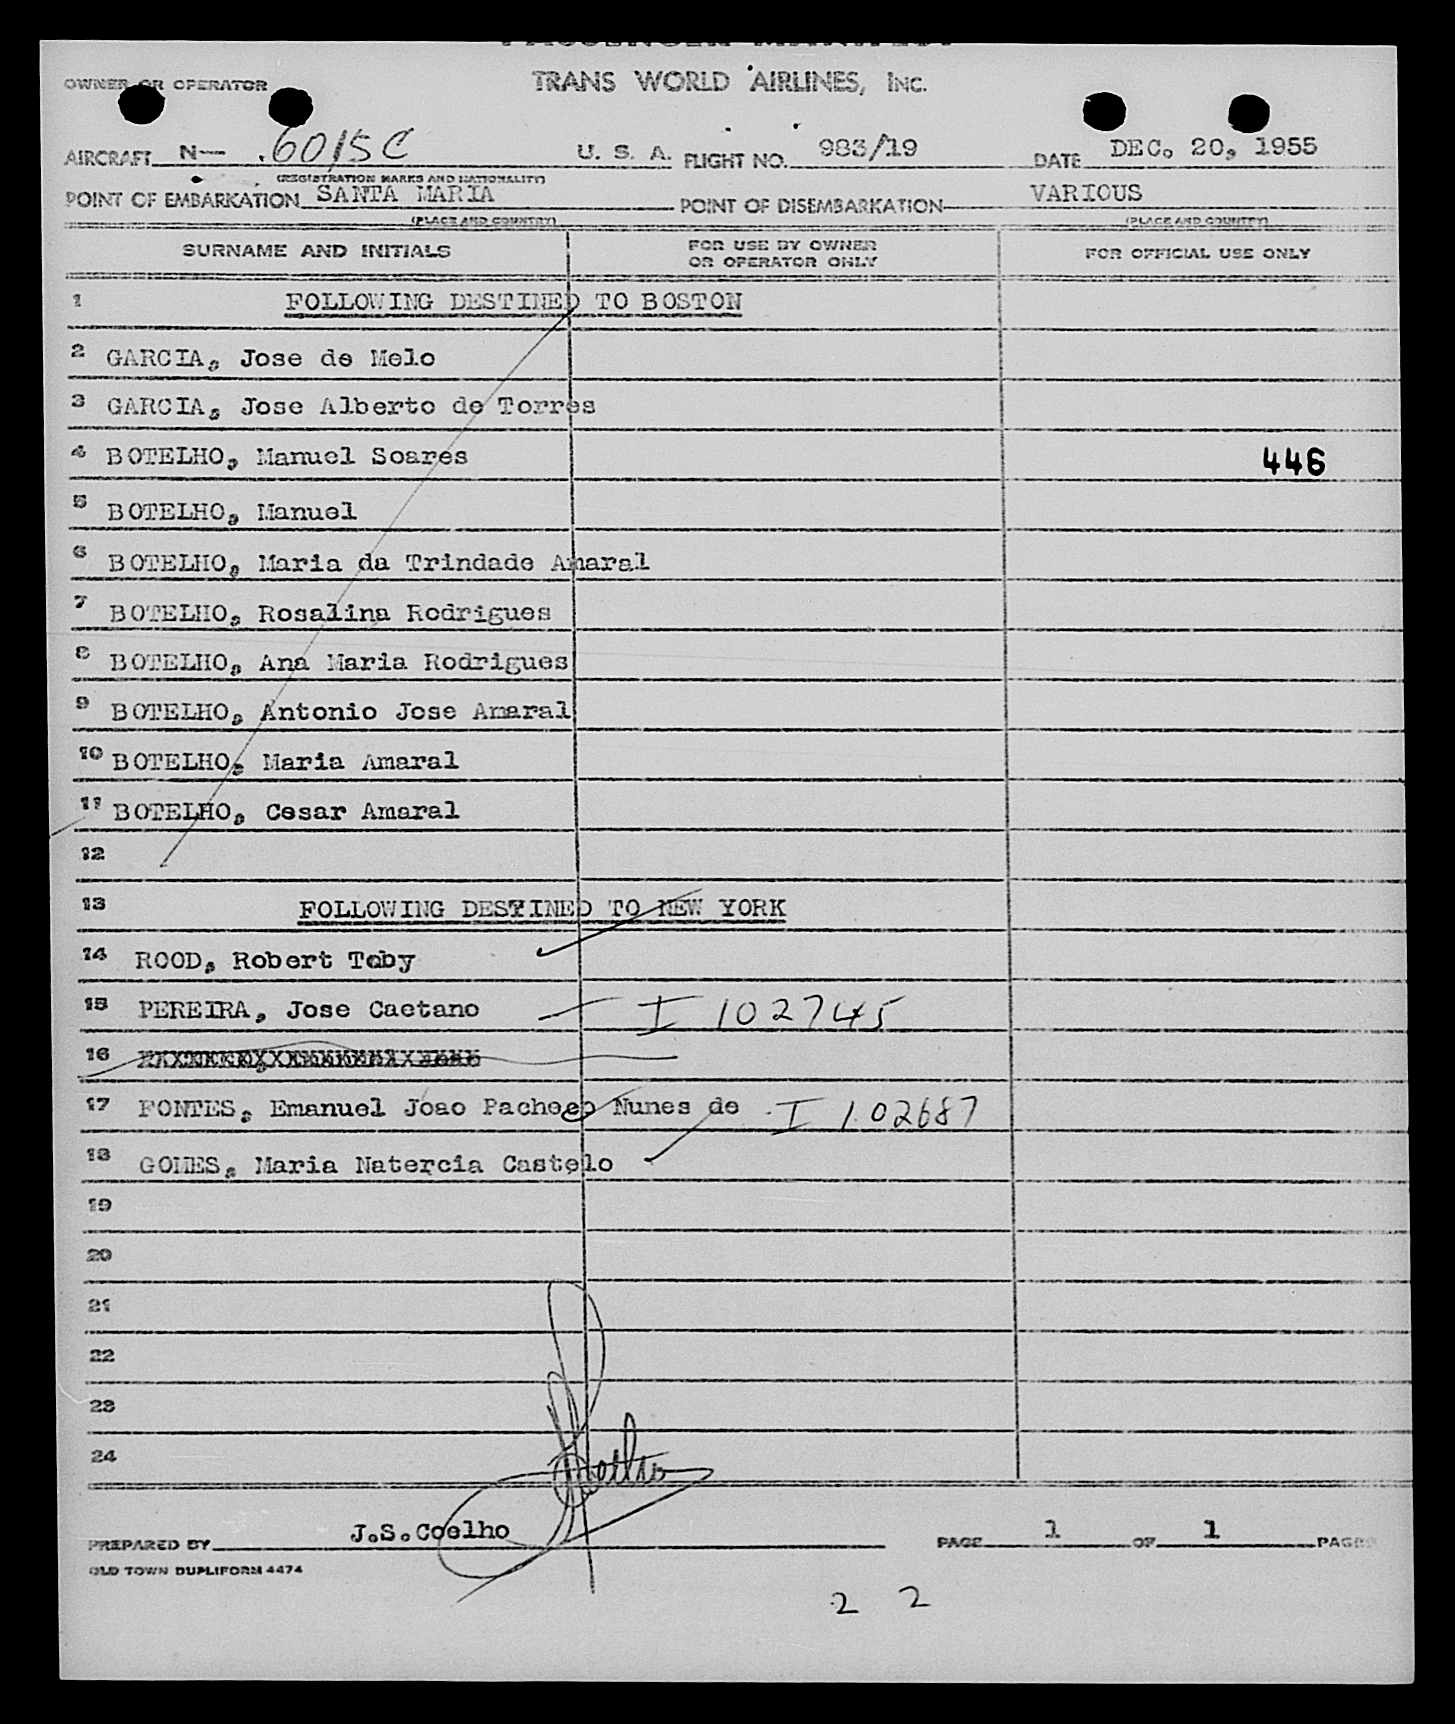 PASSENGER MANIFEST
OWNER OR OPERATOR TRANS WORLD AIRLINES, INC.
AIRCRAFT N— 6015C U. S. A. FLIGHT NO. 983/19 DATE DEC. 20, 1955
(REGISTRATION MARKS AND NATIONALITY)
POINT OF EMBARKATION SANTA MARIA POINT OF DISEMBARKATION VARIOUS
(PLACE AND COUNTRY) (PLACE AND COUNTRY)
SURNAME AND INITIALS FOR USE BY OWNER OR OPERATOR ONLY FOR OFFICIAL USE ONLY
1 FOLLOWING DESTINED TO BOSTON
2 GARCIA, Jose de Melo
3 GARCIA, Jose Alberto de Torres
4 BOTELHO, Manuel Soares 446
5 BOTELHO, Manuel
6 BOTELHO, Maria da Trindade Amaral
7 BOTELHO, Rosalina Rodrigues
8 BOTELHO, Ana Maria Rodrigues
9 BOTELHO, Antonio Jose Amaral
10 BOTELHO, Maria Amaral
11 BOTELHO, Cesar Amaral
12
13 FOLLOWING DESTINED TO NEW YORK
14 ROOD, Robert Toby
15 PEREIRA, Jose Caetano I 102745
16
17 FONTES, Emanuel Joao Pacheco Nunes de I 102687
18 GOMES, Maria Natercia Castelo
19
20
21
22
23
24
PREPARED BY J.S.Coelho PAGE 1 OF 1 PAGES
OLD TOWN DUPLIFORM 4474
2 2